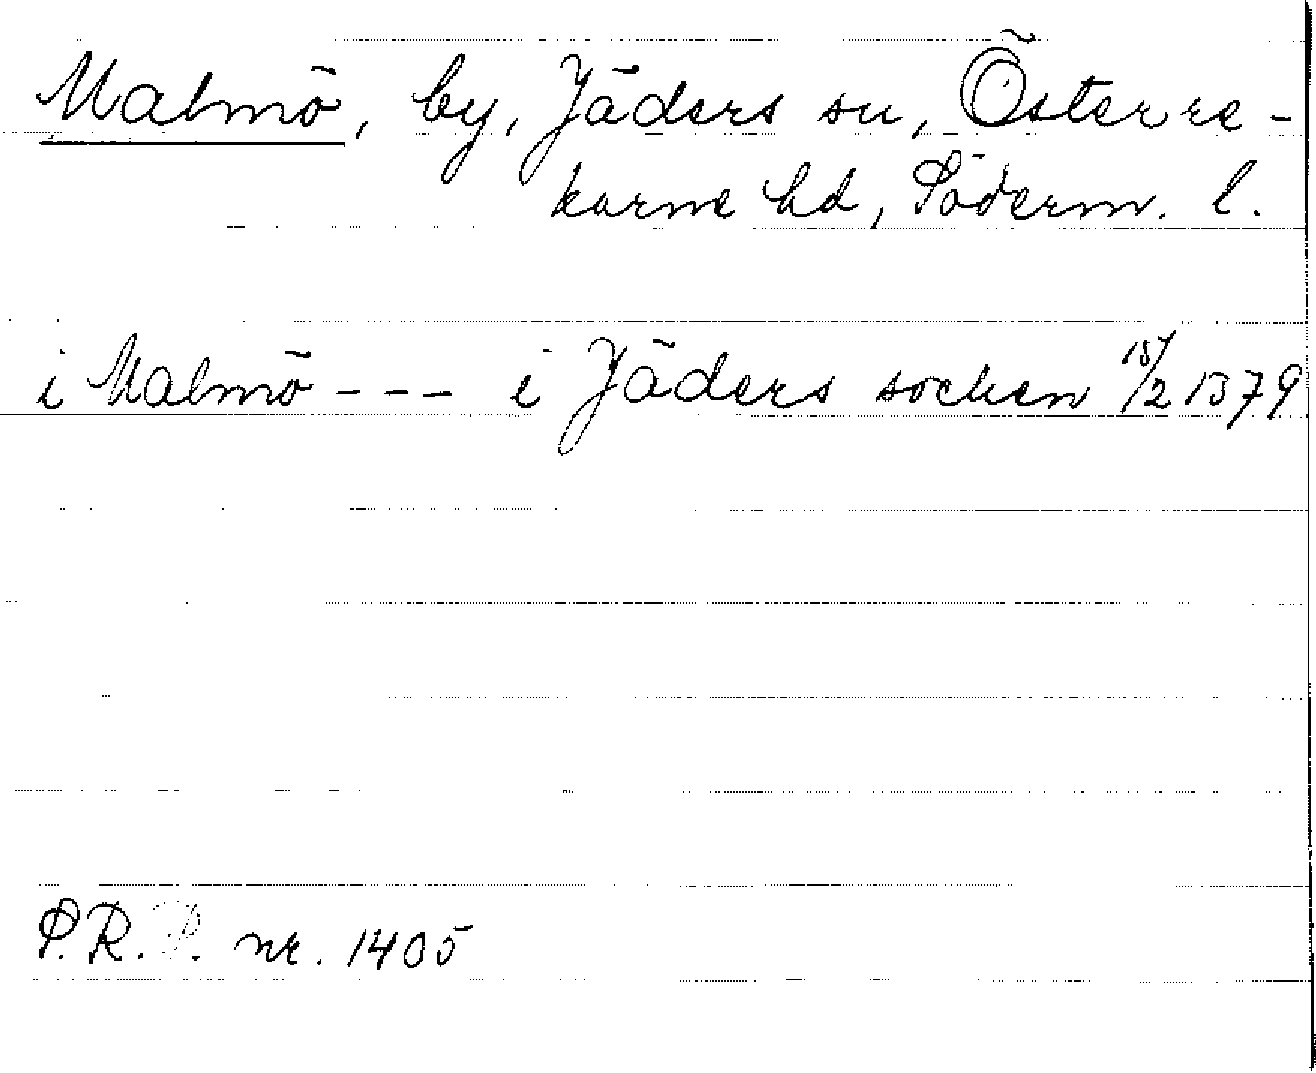 Malmö, by, Jäders sn, Österre-
karne hd, Söderm. l.
i Malmö - - - i Jäders socken 15/2 1379
P.R.P. nr. 1405